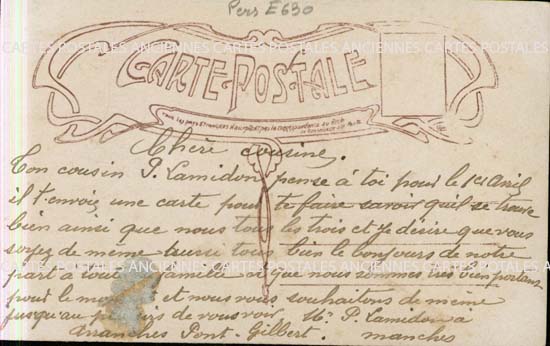 Pers E630
CARTES POSTALES ANCIENNES CARTES POSTALES ANCIENNES CARTES POSTALES ANCIENNES
CARTE-POSTALE
Tous les pays étrangers n'acceptent pas la correspondance au recto
Chere cousine.
Ton cousin P. Lamidon pense á toi pour le 1er Avril
il t'envoie une carte pour te faire savoir quil se trouve
bien ainsi que nous tous les trois et je désire que vous
soyez de même tous bien le bonjours de notre
part a tous que nous sommes très bien portant
pour le et nous vous souhaitons de même
jusqu'au de vous voir. Mr P. Lamidon à
avranches Pont-Gilbert. manches